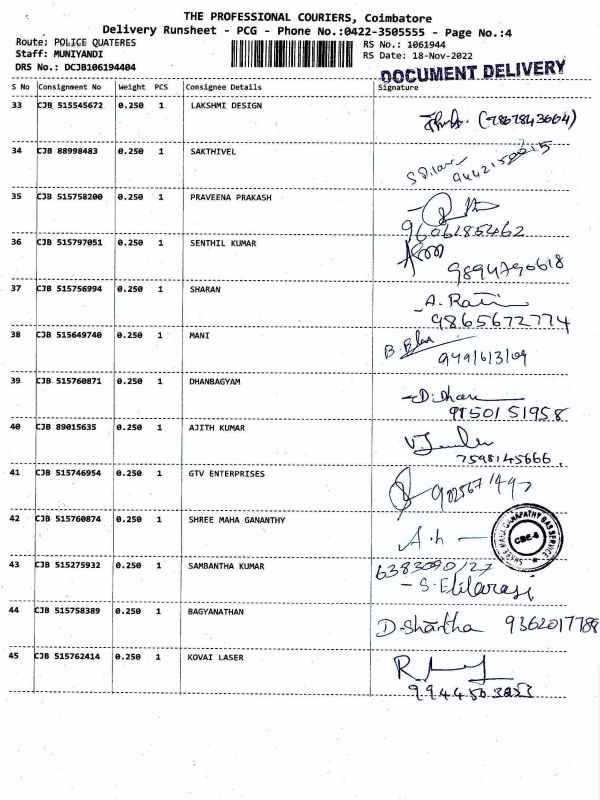 THE PROFESSIONAL COURIERS, Coimbatore
Delivery Runsheet - PCG - Phone No.:0422-3505555 - Page No.:4
Route: POLICE QUATERES RS No.: 1061944
Staff: MUNIYANDI RS Date: 18-Nov-2022
DRS No.: DCJB106194404 DOCUMENT DELIVERY
S No Consignment No Weight PCS Consignee Details Signature
33 CJB 515545672 0.250 1 LAKSHMI DESIGN
(7867843664)
34 CJB 88998483 0.250 1 SAKTHIVEL
35 CJB 515758200 0.250 1 PRAVEENA PRAKASH
9606185462
36 CJB 515797051 0.250 1 SENTHIL KUMAR
9894790618
37 CJB 515756994 0.250 1 SHARAN
A. Rati
9865672774
38 CJB 515649740 0.250 1 MANI
39 CJB 515760871 0.250 1 DHANBAGYAM
D. Dhan
9150151958
40 CJB 89015635 0.250 1 AJITH KUMAR
7598145666.
41 CJB 515746954 0.250 1 GTV ENTERPRISES
42 CJB 515760874 0.250 1 SHREE MAHA GANANTHY
A.h
SHREE MAHA GANAPATHY GAS SERVICE
CBE-6
43 CJB 515275932 0.250 1 SAMBANTHA KUMAR
6383090127
- S. Elilarasi
44 CJB 515758389 0.250 1 BAGYANATHAN
D. Shartha 9362017788
45 CJB 515762414 0.250 1 KOVAI LASER